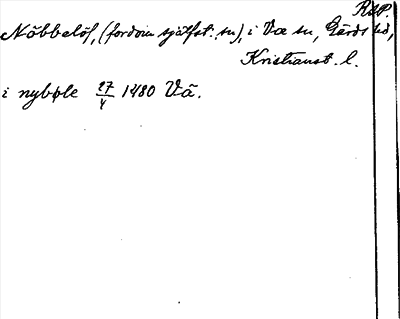 RAP.
Nöbbelöf, (fordom självst. sn), i Vä sn, Gärds hd,
Kristianst. l.
i nybøle 27/4 1480 Vä.